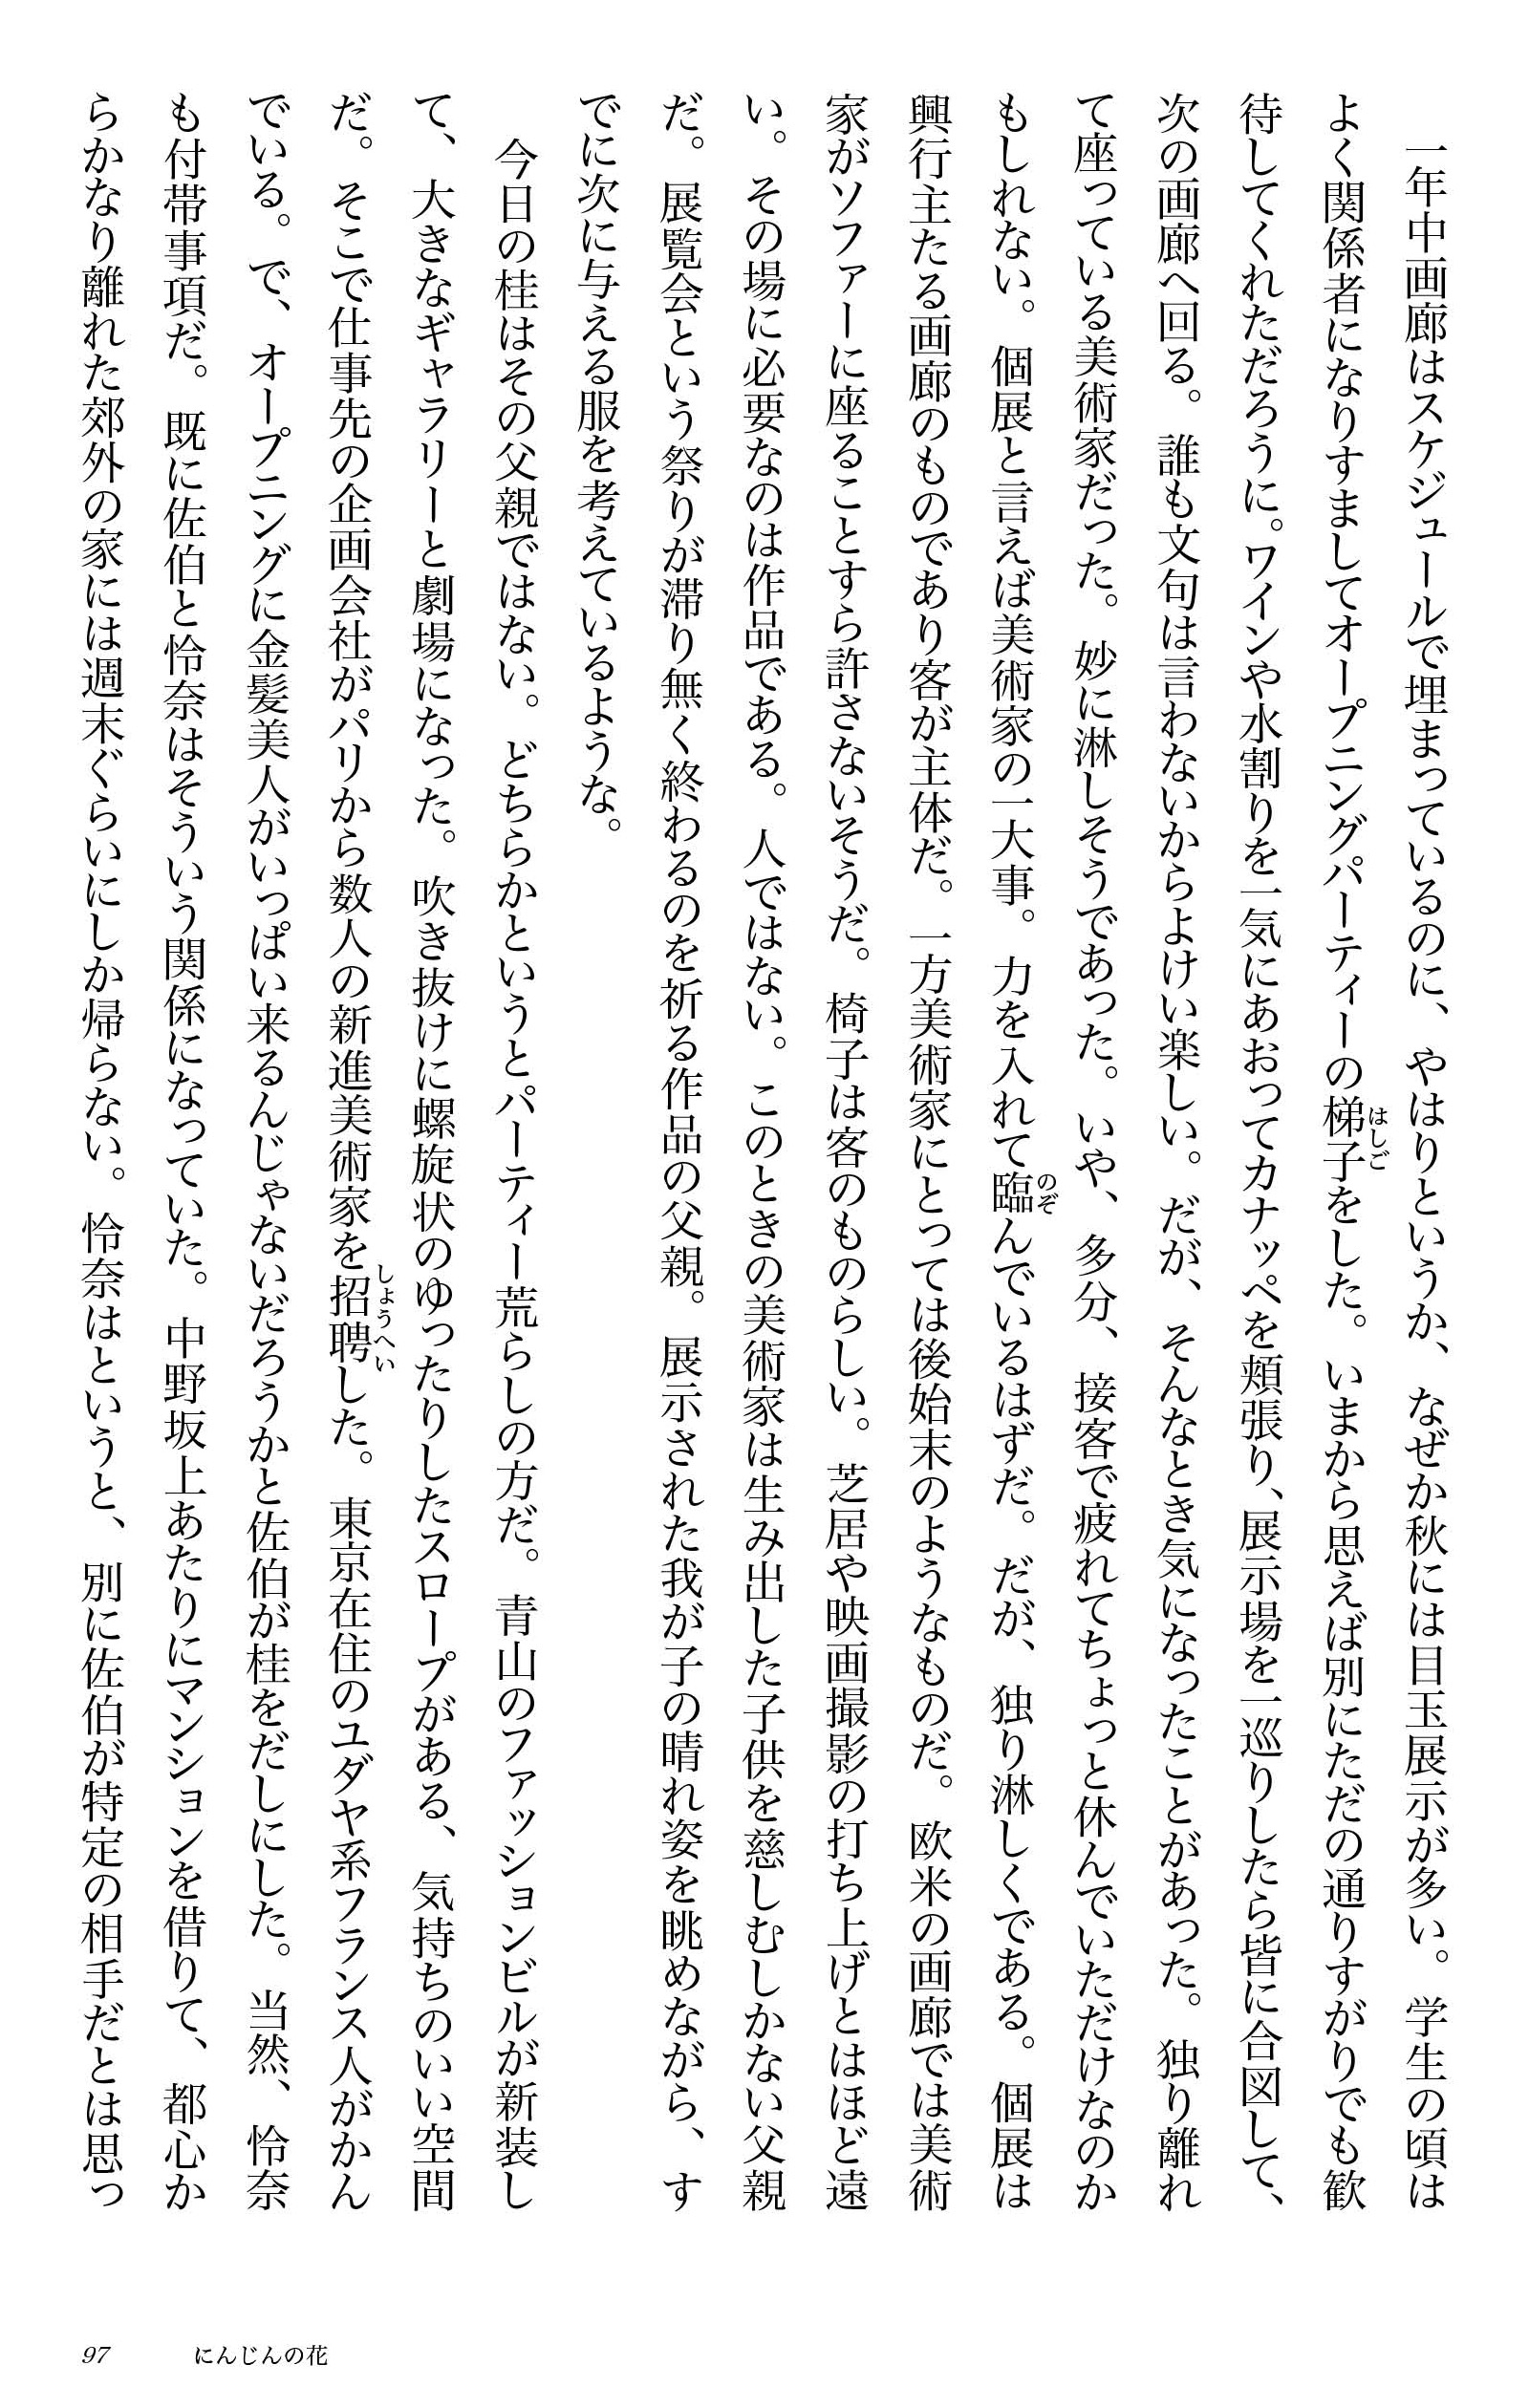 一年中画廊はスケジュールで埋まっているのに、やはりというか、なぜか秋には目玉展示が多い。学生の頃は
よく関係者になりすましてオープニングパーティーの梯子をした。いまから思えば別にただの通りすがりでも歓
待してくれただろうに。ワインや水割りを一気にあおってカナッペを頬張り、展示場を一巡りしたら皆に合図して、
次の画廊へ回る。誰も文句は言わないからよけい楽しい。だが、そんなとき気になったことがあった。独り離れ
て座っている美術家だった。妙に淋しそうであった。いや、多分、接客で疲れてちょっと休んでいただけなのか
もしれない。個展と言えば美術家の一大事。力を入れて臨んでいるはずだ。だが、独り淋しくである。個展は
興行主たる画廊のものであり客が主体だ。一方美術家にとっては後始末のようなものだ。欧米の画廊では美術
家がソファーに座ることすら許さないそうだ。椅子は客のものらしい。芝居や映画撮影の打ち上げとはほど遠
い。その場に必要なのは作品である。人ではない。このときの美術家は生み出した子供を慈しむしかない父親
だ。展覧会という祭りが滞り無く終わるのを祈る作品の父親。展示された我が子の晴れ姿を眺めながら、す
でに次に与える服を考えているような。
　今日の桂はその父親ではない。どちらかというとパーティー荒らしの方だ。青山のファッションビルが新装し
て、大きなギャラリーと劇場になった。吹き抜けに螺旋状のゆったりしたスロープがある、気持ちのいい空間
だ。そこで仕事先の企画会社がパリから数人の新進美術家を招聘した。東京在住のユダヤ系フランス人がかん
でいる。で、オープニングに金髪美人がいっぱい来るんじゃないだろうかと佐伯が桂をだしにした。当然、怜奈
も付帯事項だ。既に佐伯と怜奈はそういう関係になっていた。中野坂上あたりにマンションを借りて、都心か
らかなり離れた郊外の家には週末ぐらいにしか帰らない。怜奈はというと、別に佐伯が特定の相手だとは思っ
はしご
のぞ
しょうへい
97　にんじんの花